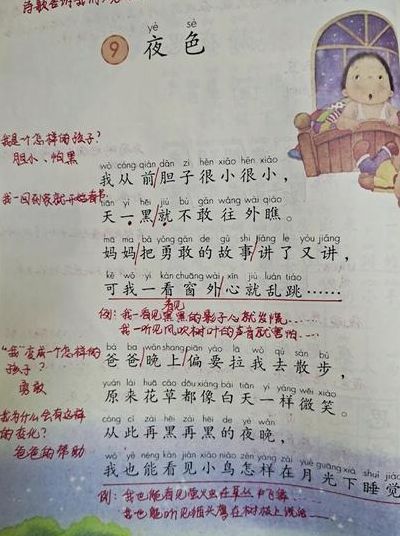 yè sè
9 夜色
我是个怎样的孩子?
胆小、怕黑
wǒ cóng qián dǎn zi hěn xiǎo hěn xiǎo
我从前/胆子很小很小,
我一回到家就开始看书
tiān yì hēi jiù bù gǎn wǎng wài qiáo
天一黑/就不敢往外瞧。
mā ma bǎ yǒng gǎn de gù shi jiǎng le yòu jiǎng
妈妈/把勇敢的故事/讲了又讲,
kě wǒ yí kàn chuāng wài xīn jiù luàn tiào
可我一看窗外/心就乱跳……
看见
例:我一看见黑黑的影子心就发慌……
我一听见风吹树叶的声音就害怕……
bà ba wǎn shang piān yào lā wǒ qù sàn bù
爸爸/晚上/偏要拉我去散步,
"我"变成一个怎样的
孩子?
勇敢
yuán lái huā cǎo dōu xiàng bái tiān yí yàng wēi xiào
原来花草都像白天一样微笑。
我为什么会有这样
的变化?
爸爸的帮助
cóng cǐ zài hēi zài hēi de yè wǎn
从此再黑再黑的夜晚,
wǒ yě néng kàn jiàn xiǎo niǎo zěn yàng zài yuè guāng xià shuì jiào
我也能看见小鸟怎样在月光下睡觉
例:我也能看见萤火虫在草丛中飞舞……
我也能听见猫头鹰在树枝上说话……